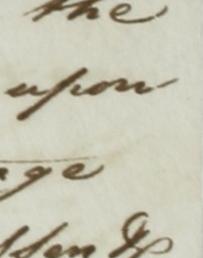 the
upon
ge
ssen &